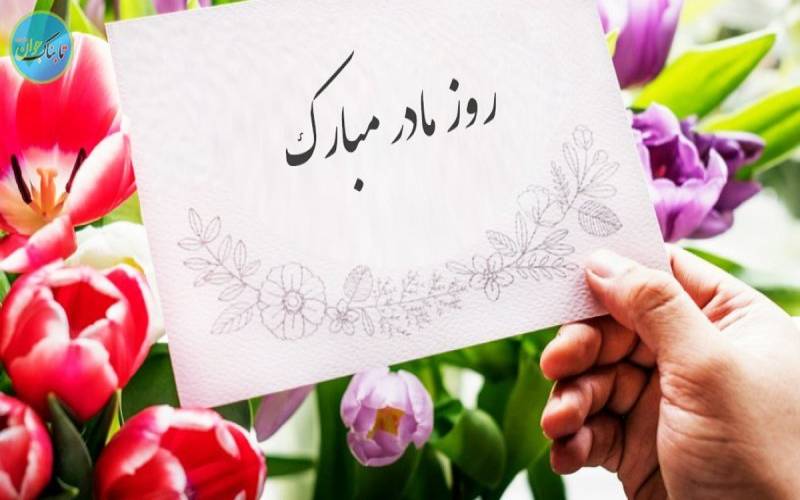 تابناک جوان
روز مادر مبارک